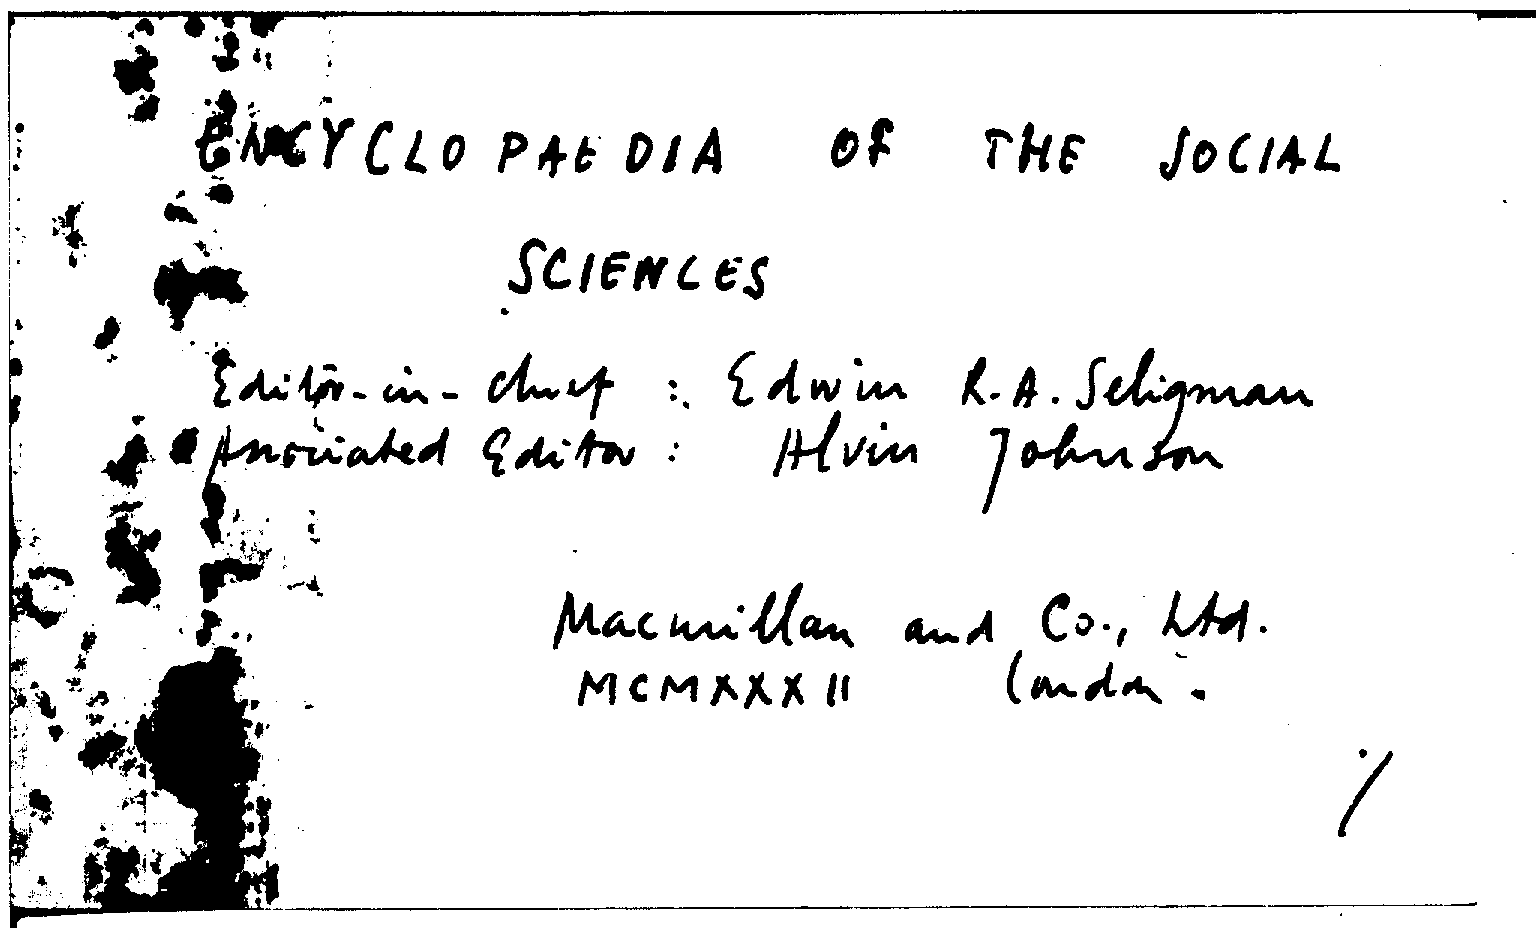 ENCYCLOPAEDIA OF THE SOCIAL
SCIENCES
Editor-in-chief : Edwin R.A. Seligman
Associated Editor : Alvin Johnson
Macmillan and Co., Ltd.
MCMXXXII London.